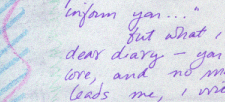 inform you..."
But what,
dear diary - you
core, and no m
leads me, I wri